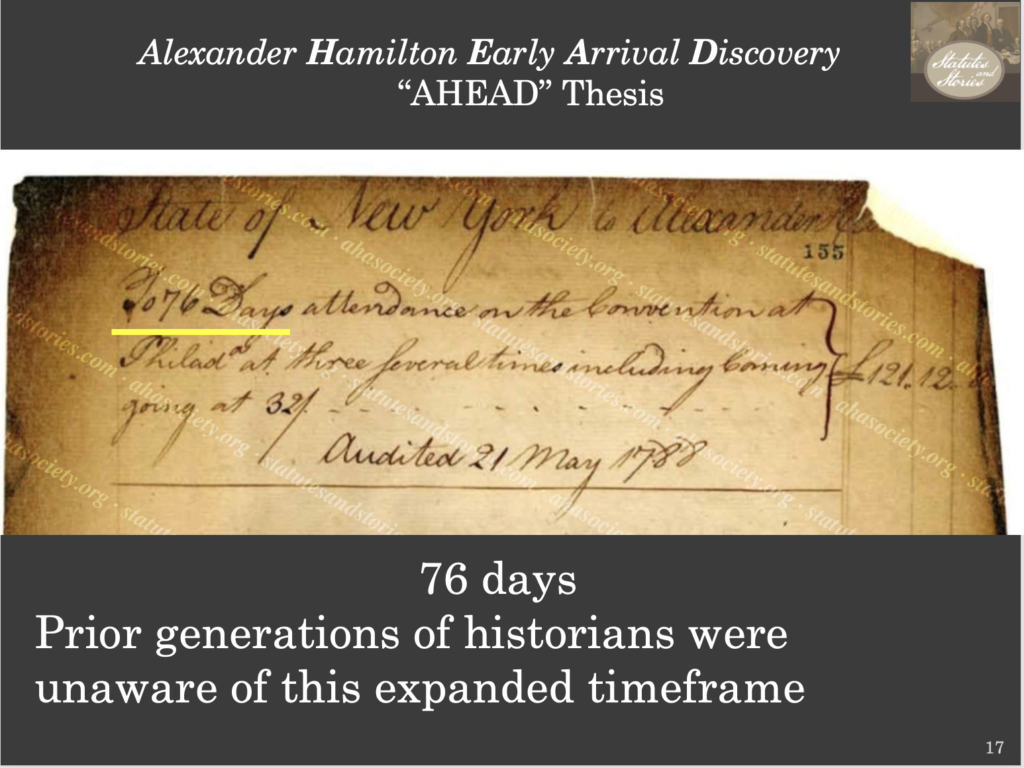 Alexander Hamilton Early Arrival Discovery
“AHEAD” Thesis
Statutes
and
Stories
State of New York to Alexander
155
To 76 Days attendance on the Convention at
Philadᵃ at three several times including Coming
going at 32/. £121.12.
Audited 21 May 1788
statutesandstories.com · ahasociety.org
76 days
Prior generations of historians were
unaware of this expanded timeframe
17